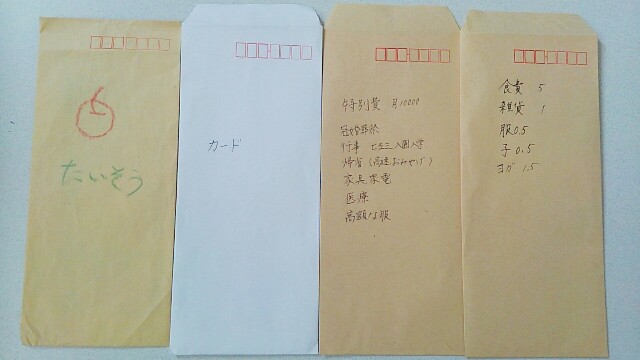 たいそう
カード
特別費 月10000
冠婚葬祭
行事 七五三 入園入学
帰省(高速おみやげ)
家具家電
医療
高額な服
食費 5
雑貨 1
服 0.5
子 0.5
ヨガ 1.5